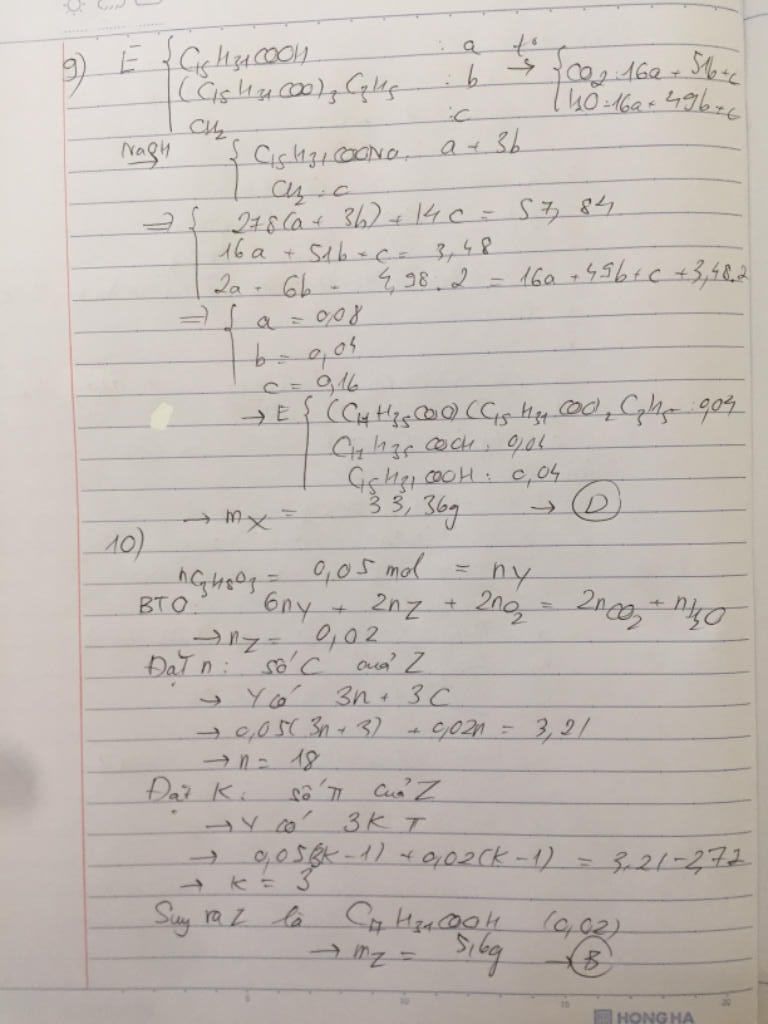 9) E { C15H31COOH : a t° → { CO2: 16a + 51b + c
(C15H31COO)3C3H5 : b H2O: 16a + 49b + c
CH2 : c
NaOH { C15H31COONa: a + 3b
CH2: c
⇒ { 278(a + 3b) + 14c = 57,84
16a + 51b + c = 3,48
2a + 6b + 4,98.2 = 16a + 49b + c + 3,48.2
⇒ { a = 0,08
b = 0,04
c = 0,16
→ E { (C17H35COO)(C15H31COO)2C3H5: 0,04
C17H35COOH: 0,04
C15H31COOH: 0,04
→ mX = 33,36g → D
10)
nC3H8O3 = 0,05 mol = nY
BTO: 6nY + 2nZ + 2nO2 = 2nCO2 + nH2O
→ nZ = 0,02
Đặt n: số C của Z
→ Y có 3n + 3 C
→ 0,05(3n + 3) + 0,02n = 3,21
→ n = 18
Đặt K: số π của Z
→ Y có 3K π
→ 0,05(3k - 1) + 0,02(k - 1) = 3,21 - 2,77
→ k = 3
Suy ra Z là C17H31COOH (0,02)
→ mZ = 5,6g → B
HONG HA
5 10 15 20